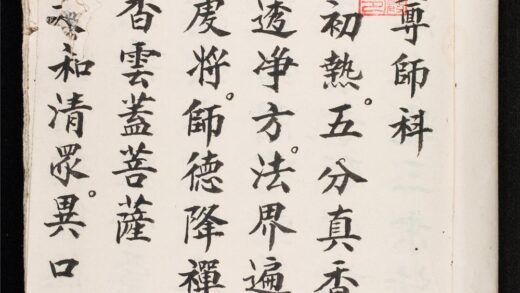 尊師科
初熱。五分真香
透净方。法界遍
虔將。師德降禪
香雲蓋菩薩
和清眾。異口